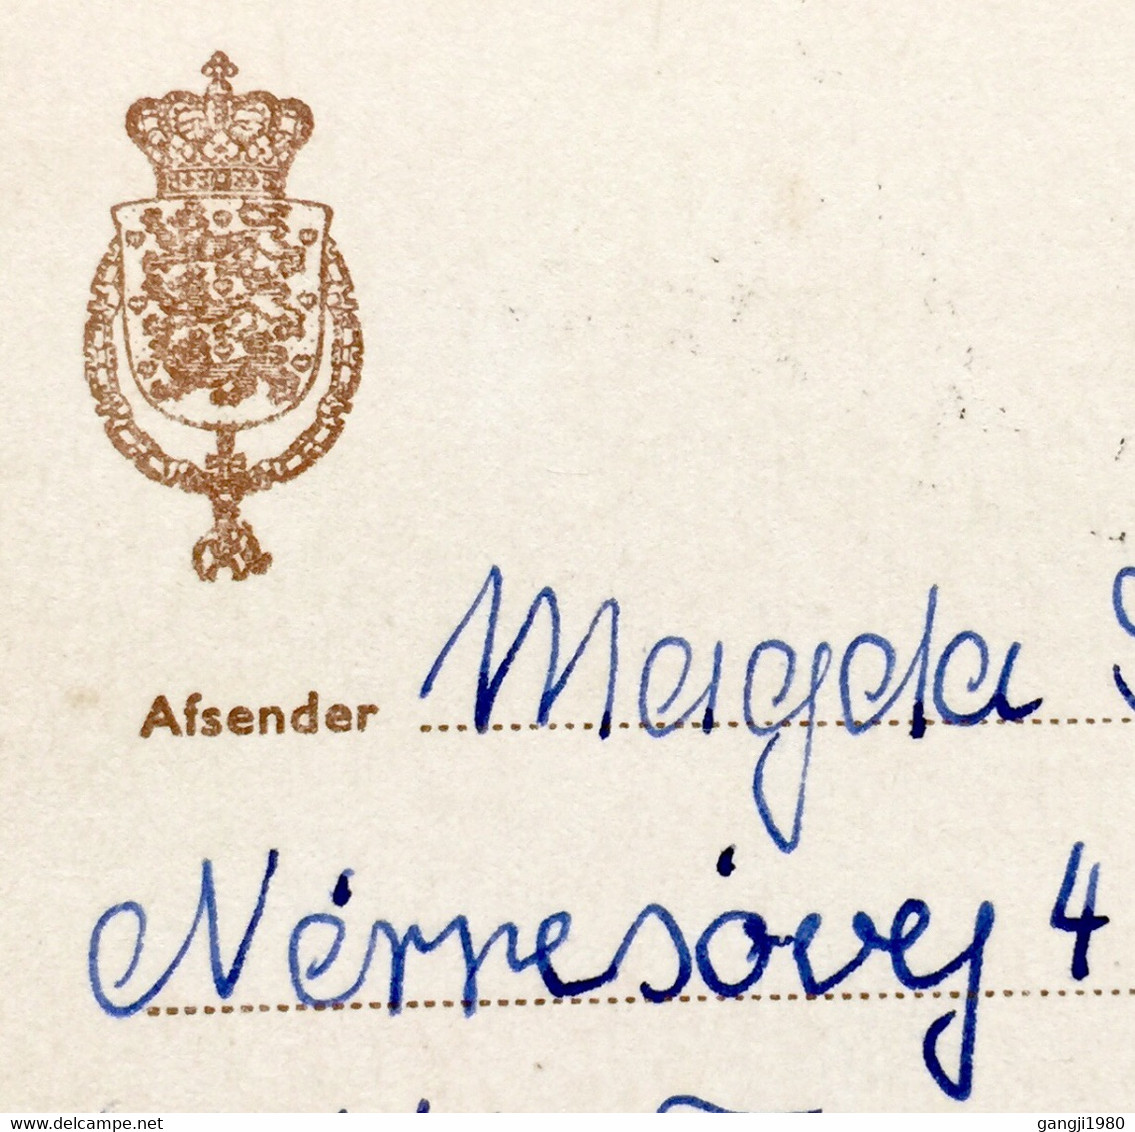 Afsender Magda
Nérresóvej 4
delcampe.net
gangji1980